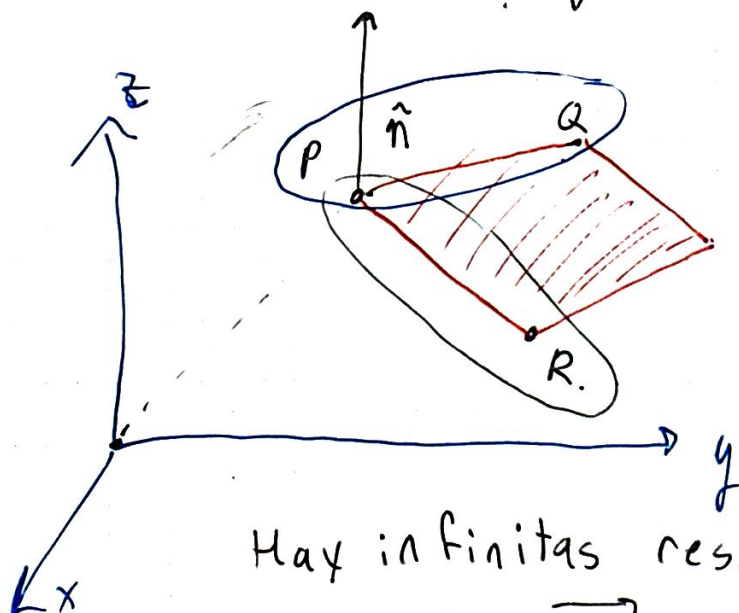 z
n̂
P
Q
R.
y
Hay infinitas res
x